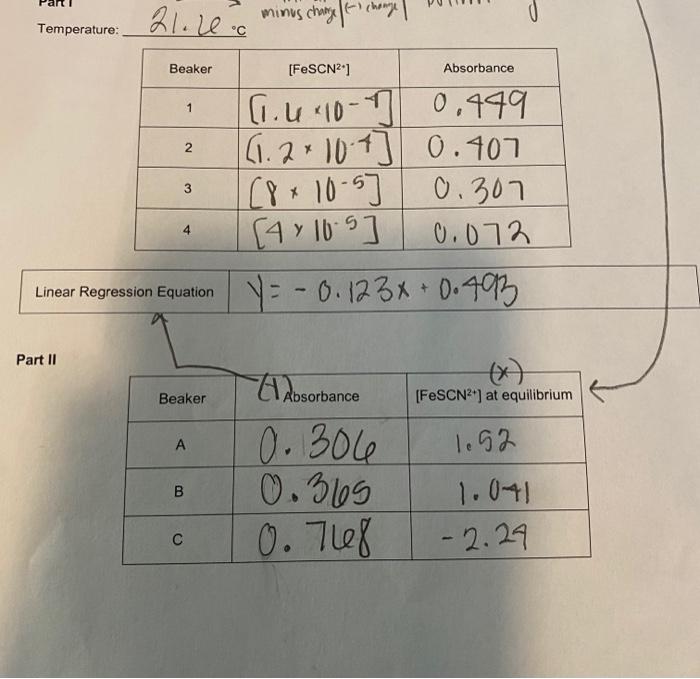 Part I
minus change (-) change
Temperature: 21.6 °C
Beaker [FeSCN²⁺] Absorbance
1 [1.6 × 10⁻⁴] 0.449
2 [1.2 × 10⁻⁴] 0.407
3 [8 × 10⁻⁵] 0.307
4 [4 × 10⁻⁵] 0.072
Linear Regression Equation Y = - 0.123x + 0.493
Part II
(x)
Beaker (Y) Absorbance [FeSCN²⁺] at equilibrium
A 0.306 1.52
B 0.365 1.041
C 0.768 - 2.24